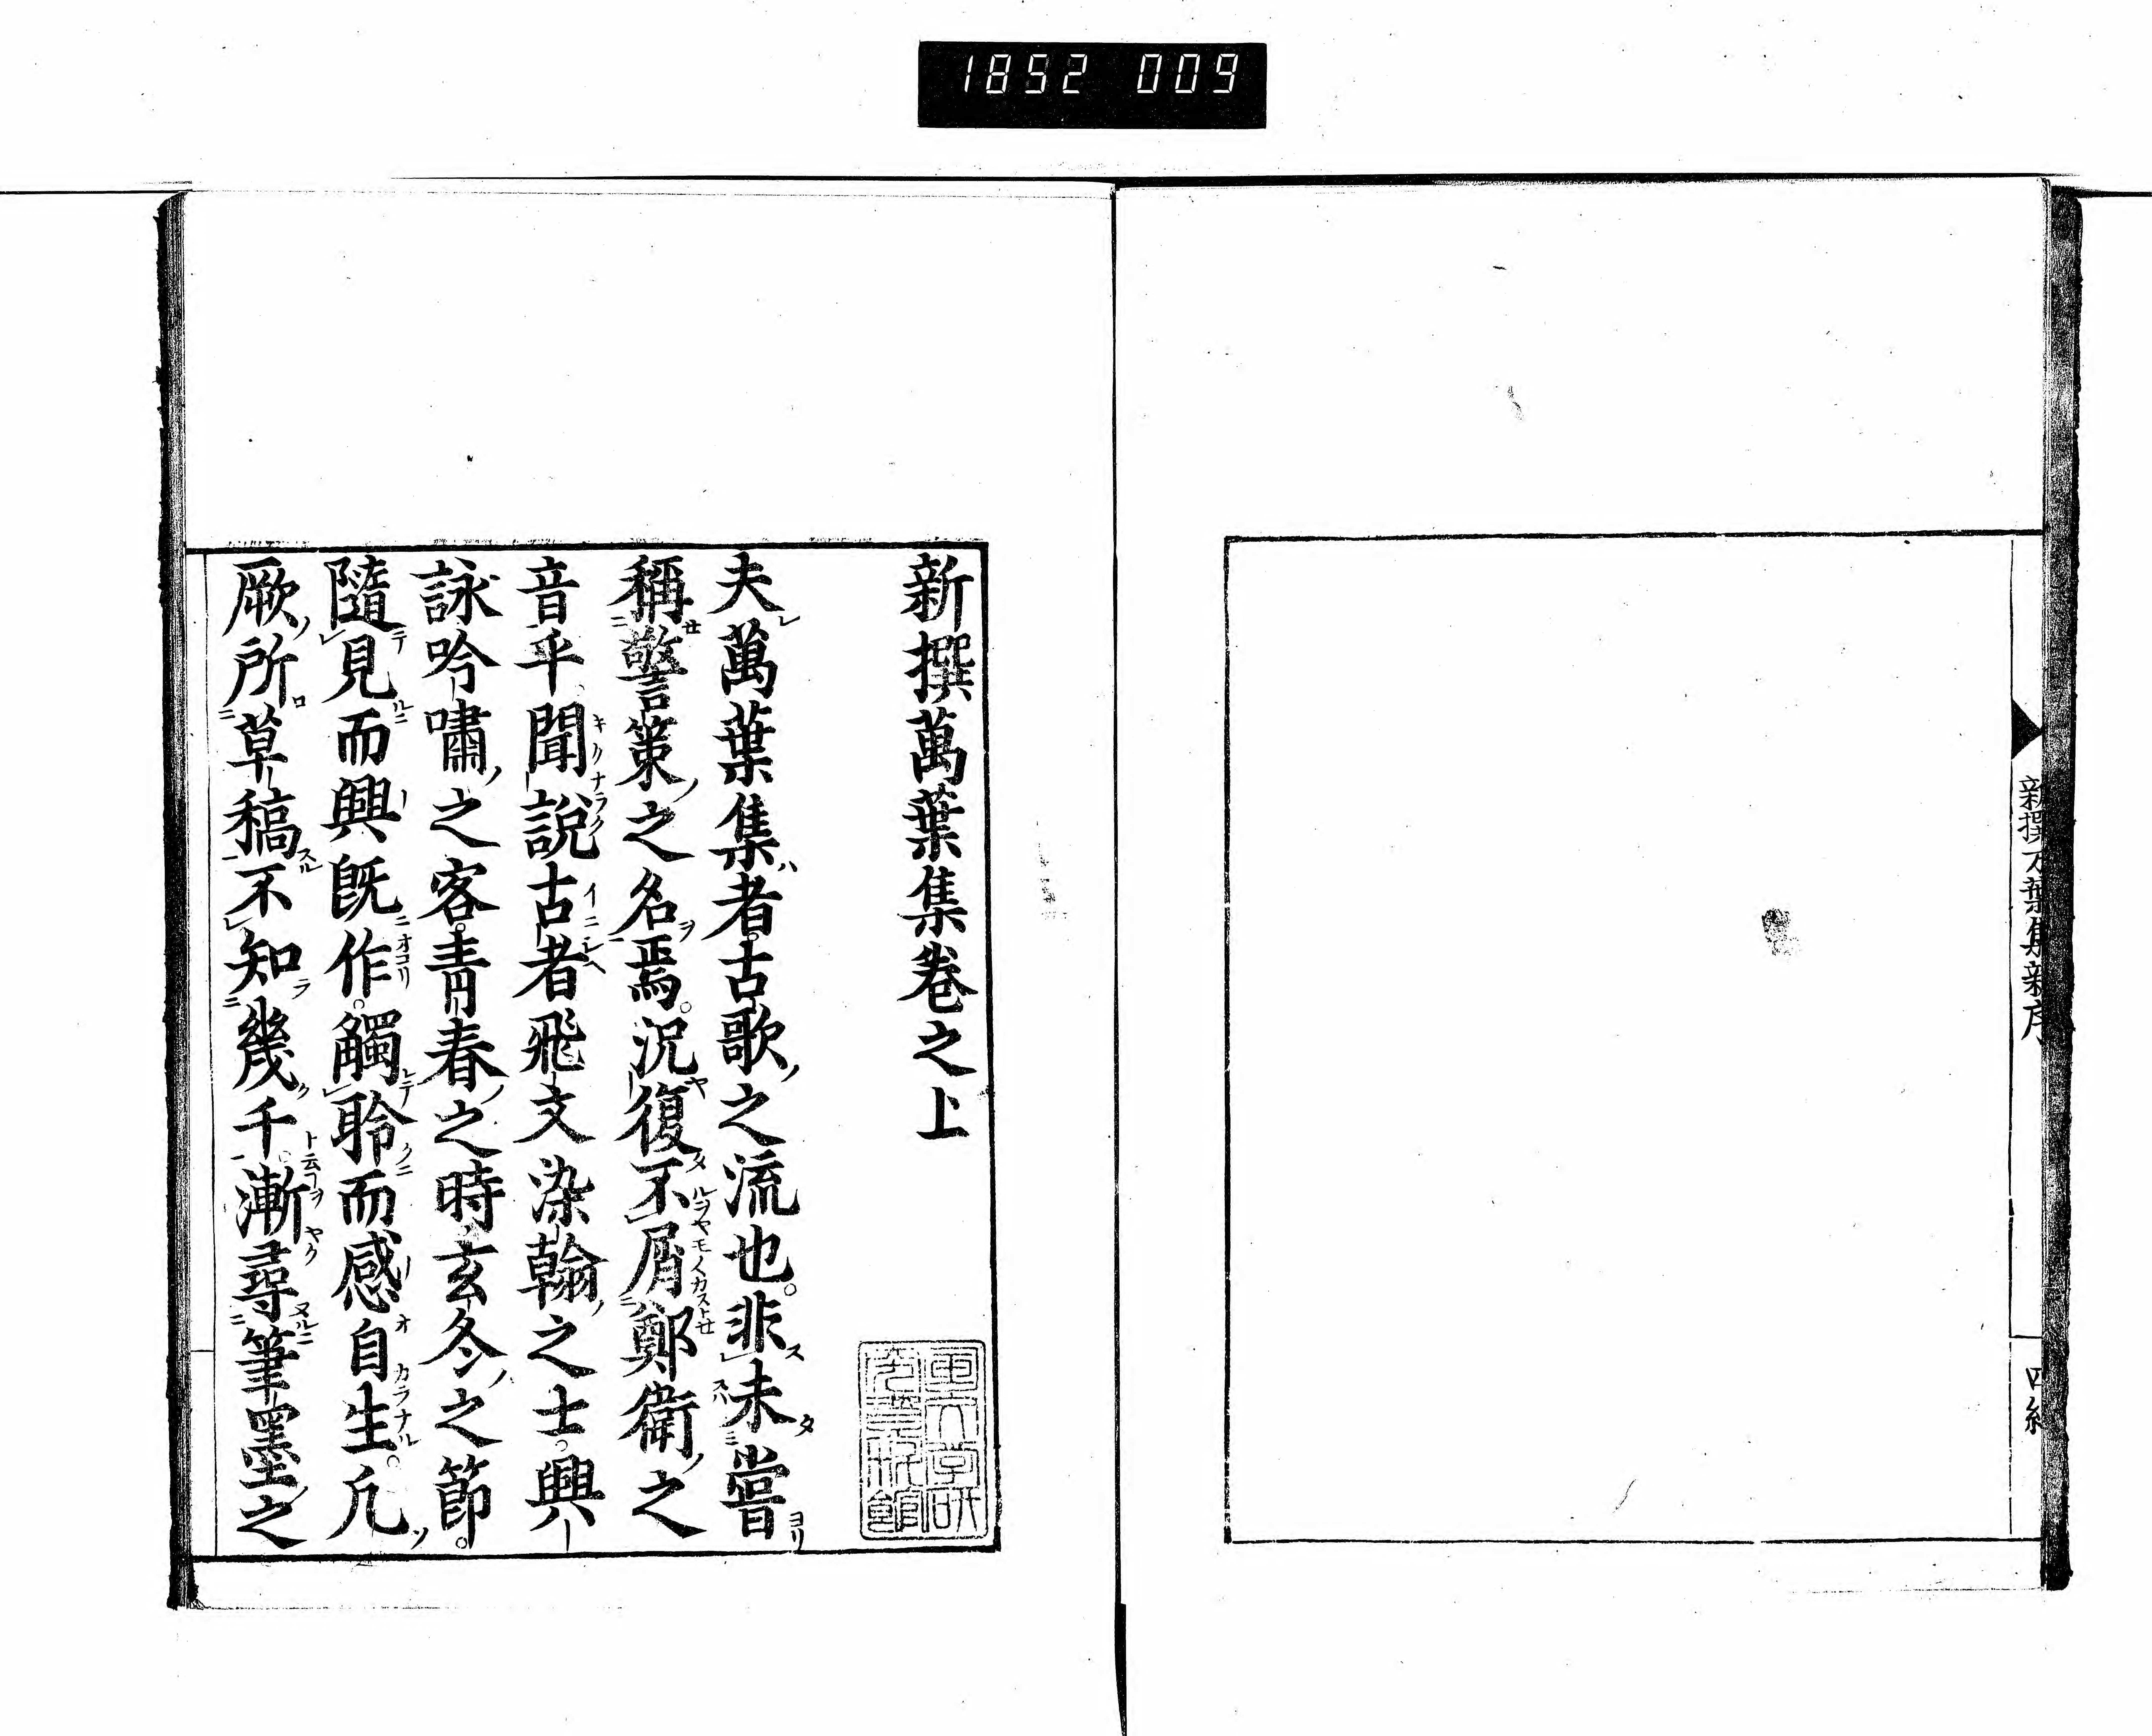 1852 009
新撰万葉集新序
四終
新撰萬葉集巻之上
夫萬葉集者古歌之流也。非未嘗
稱警策之名焉。況復不屑鄭衛之
音乎。聞說古者飛文染翰之士。興
詠吟嘯之客。青春之時。玄冬之節。
隨見而興既作。觸聆而感自生。凡
厥所草稿不知幾千。漸尋筆墨之